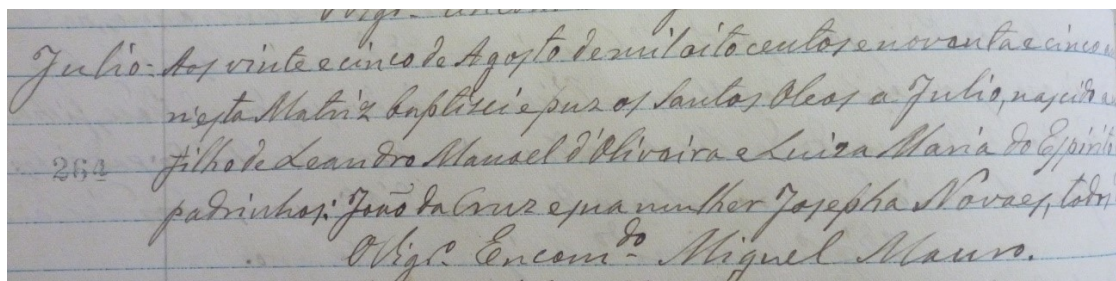 Julio- Aos vinte e cinco de Agosto de mil oitocentos e noventa e cinco
n'esta Matriz baptisei e puz os Santos Oleos a Julio, nascido a
264 filho de Leandro Manoel d'Oliveira e Luiza Maria do Espirito
padrinhos: João da Cruz e sua mulher Josepha Novaes, todos
O Vigrº. Encom.do Miguel Mauro.